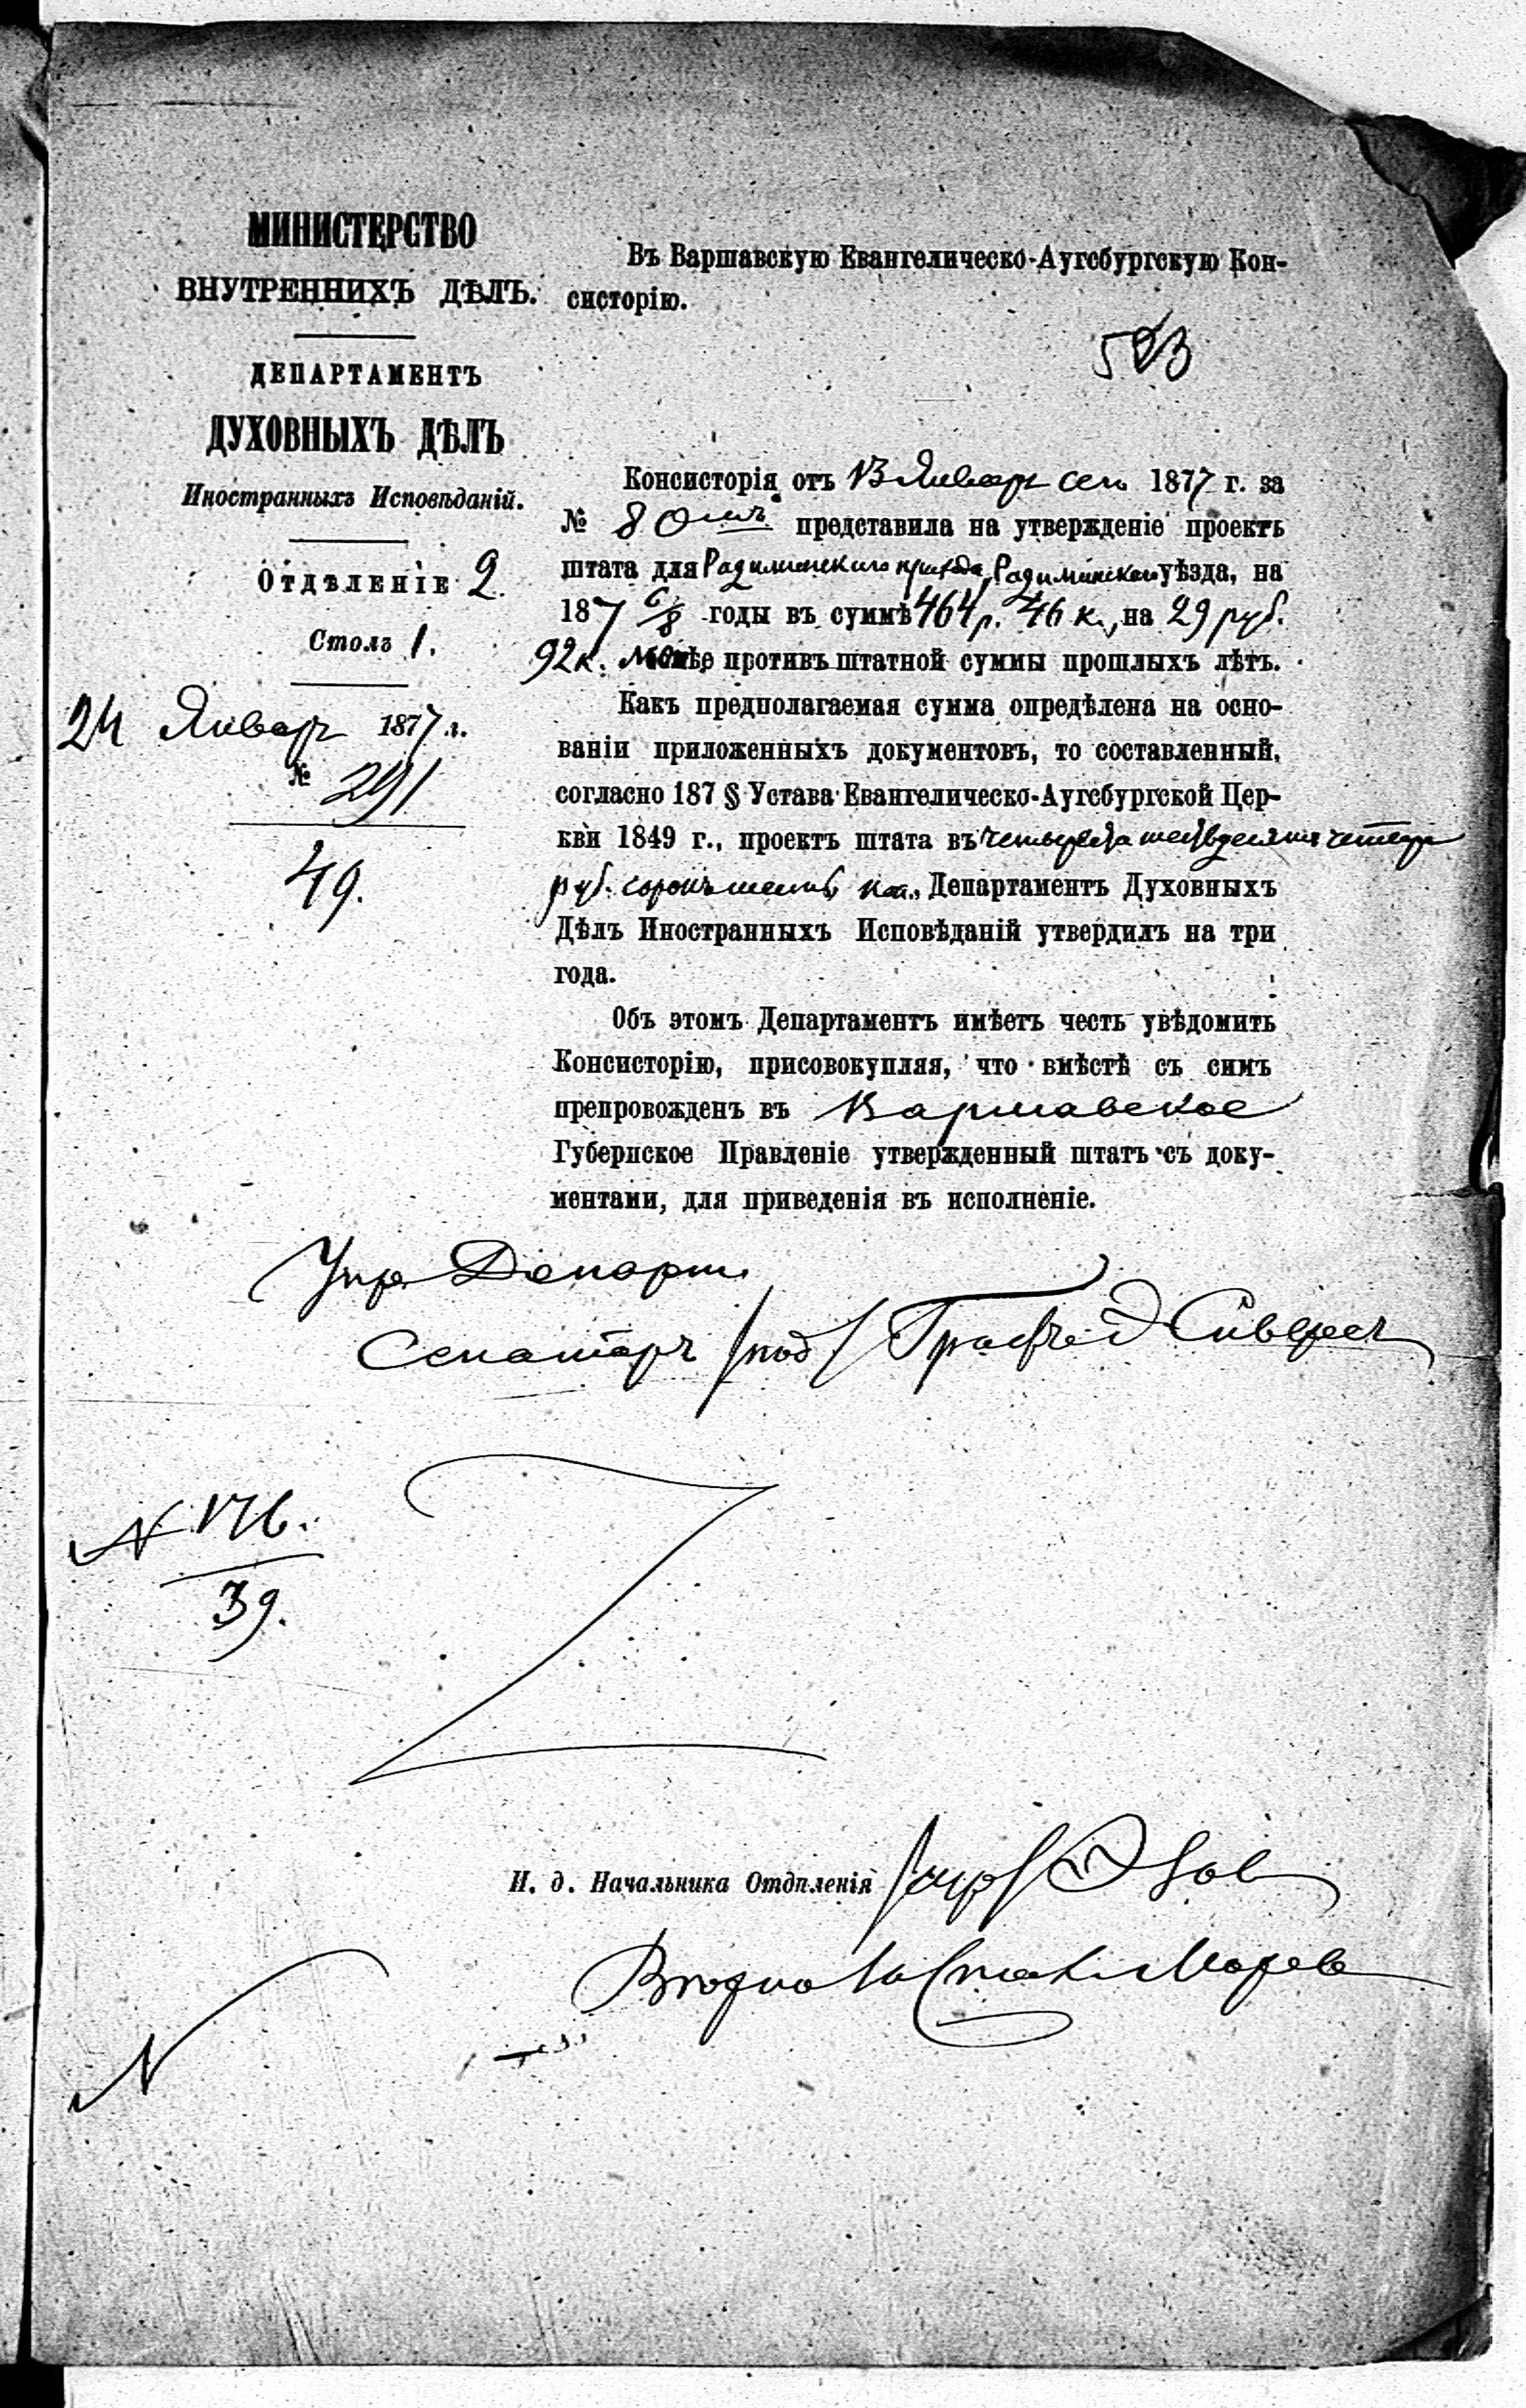 МИНИСТЕРСТВО
ВНУТРЕННИХЪ ДѢЛЪ.
ДЕПАРТАМЕНТЪ
ДУХОВНЫХЪ ДѢЛЪ
Иностранныхъ Исповѣданій.
Отдѣленіе 2.
Столъ 1.
24 Январ 1877 г.
№ 291
49.
Въ Варшавскую Евангелическо-Аугсбургскую Кон-
систорію.
523
Консисторія отъ 13 Январ сего 1877 г. за
№ 80 представила на утвержденіе проектъ
штата для Радиминскаго прихода, Радиминскаго уѣзда, на
187 6/8 годы въ суммѣ 464 р. 46 к., на 29 руб.
92 к. менѣе противъ штатной суммы прошлыхъ лѣтъ.
Какъ предполагаемая сумма опредѣлена на осно-
ваніи приложенныхъ документовъ, то составленный,
согласно 187 § Устава Евангелическо-Аугсбургской Цер-
кви 1849 г., проектъ штата въ четыреста шестьдесятъ четыре
руб. сорокъ шесть коп., Департаментъ Духовныхъ
Дѣлъ Иностранныхъ Исповѣданій утвердилъ на три
года.
Объ этомъ Департаментъ имѣетъ честь увѣдомить
Консисторію, присовокупляя, что вмѣстѣ съ симъ
препровожденъ въ Варшавское
Губернское Правленіе утвержденный штатъ съ доку-
ментами, для приведенія въ исполненіе.
Упр. Департ.
Сенаторъ /под/ Графъ Сиверсъ
N 176.
39.
И. д. Начальника Отдѣленія
N